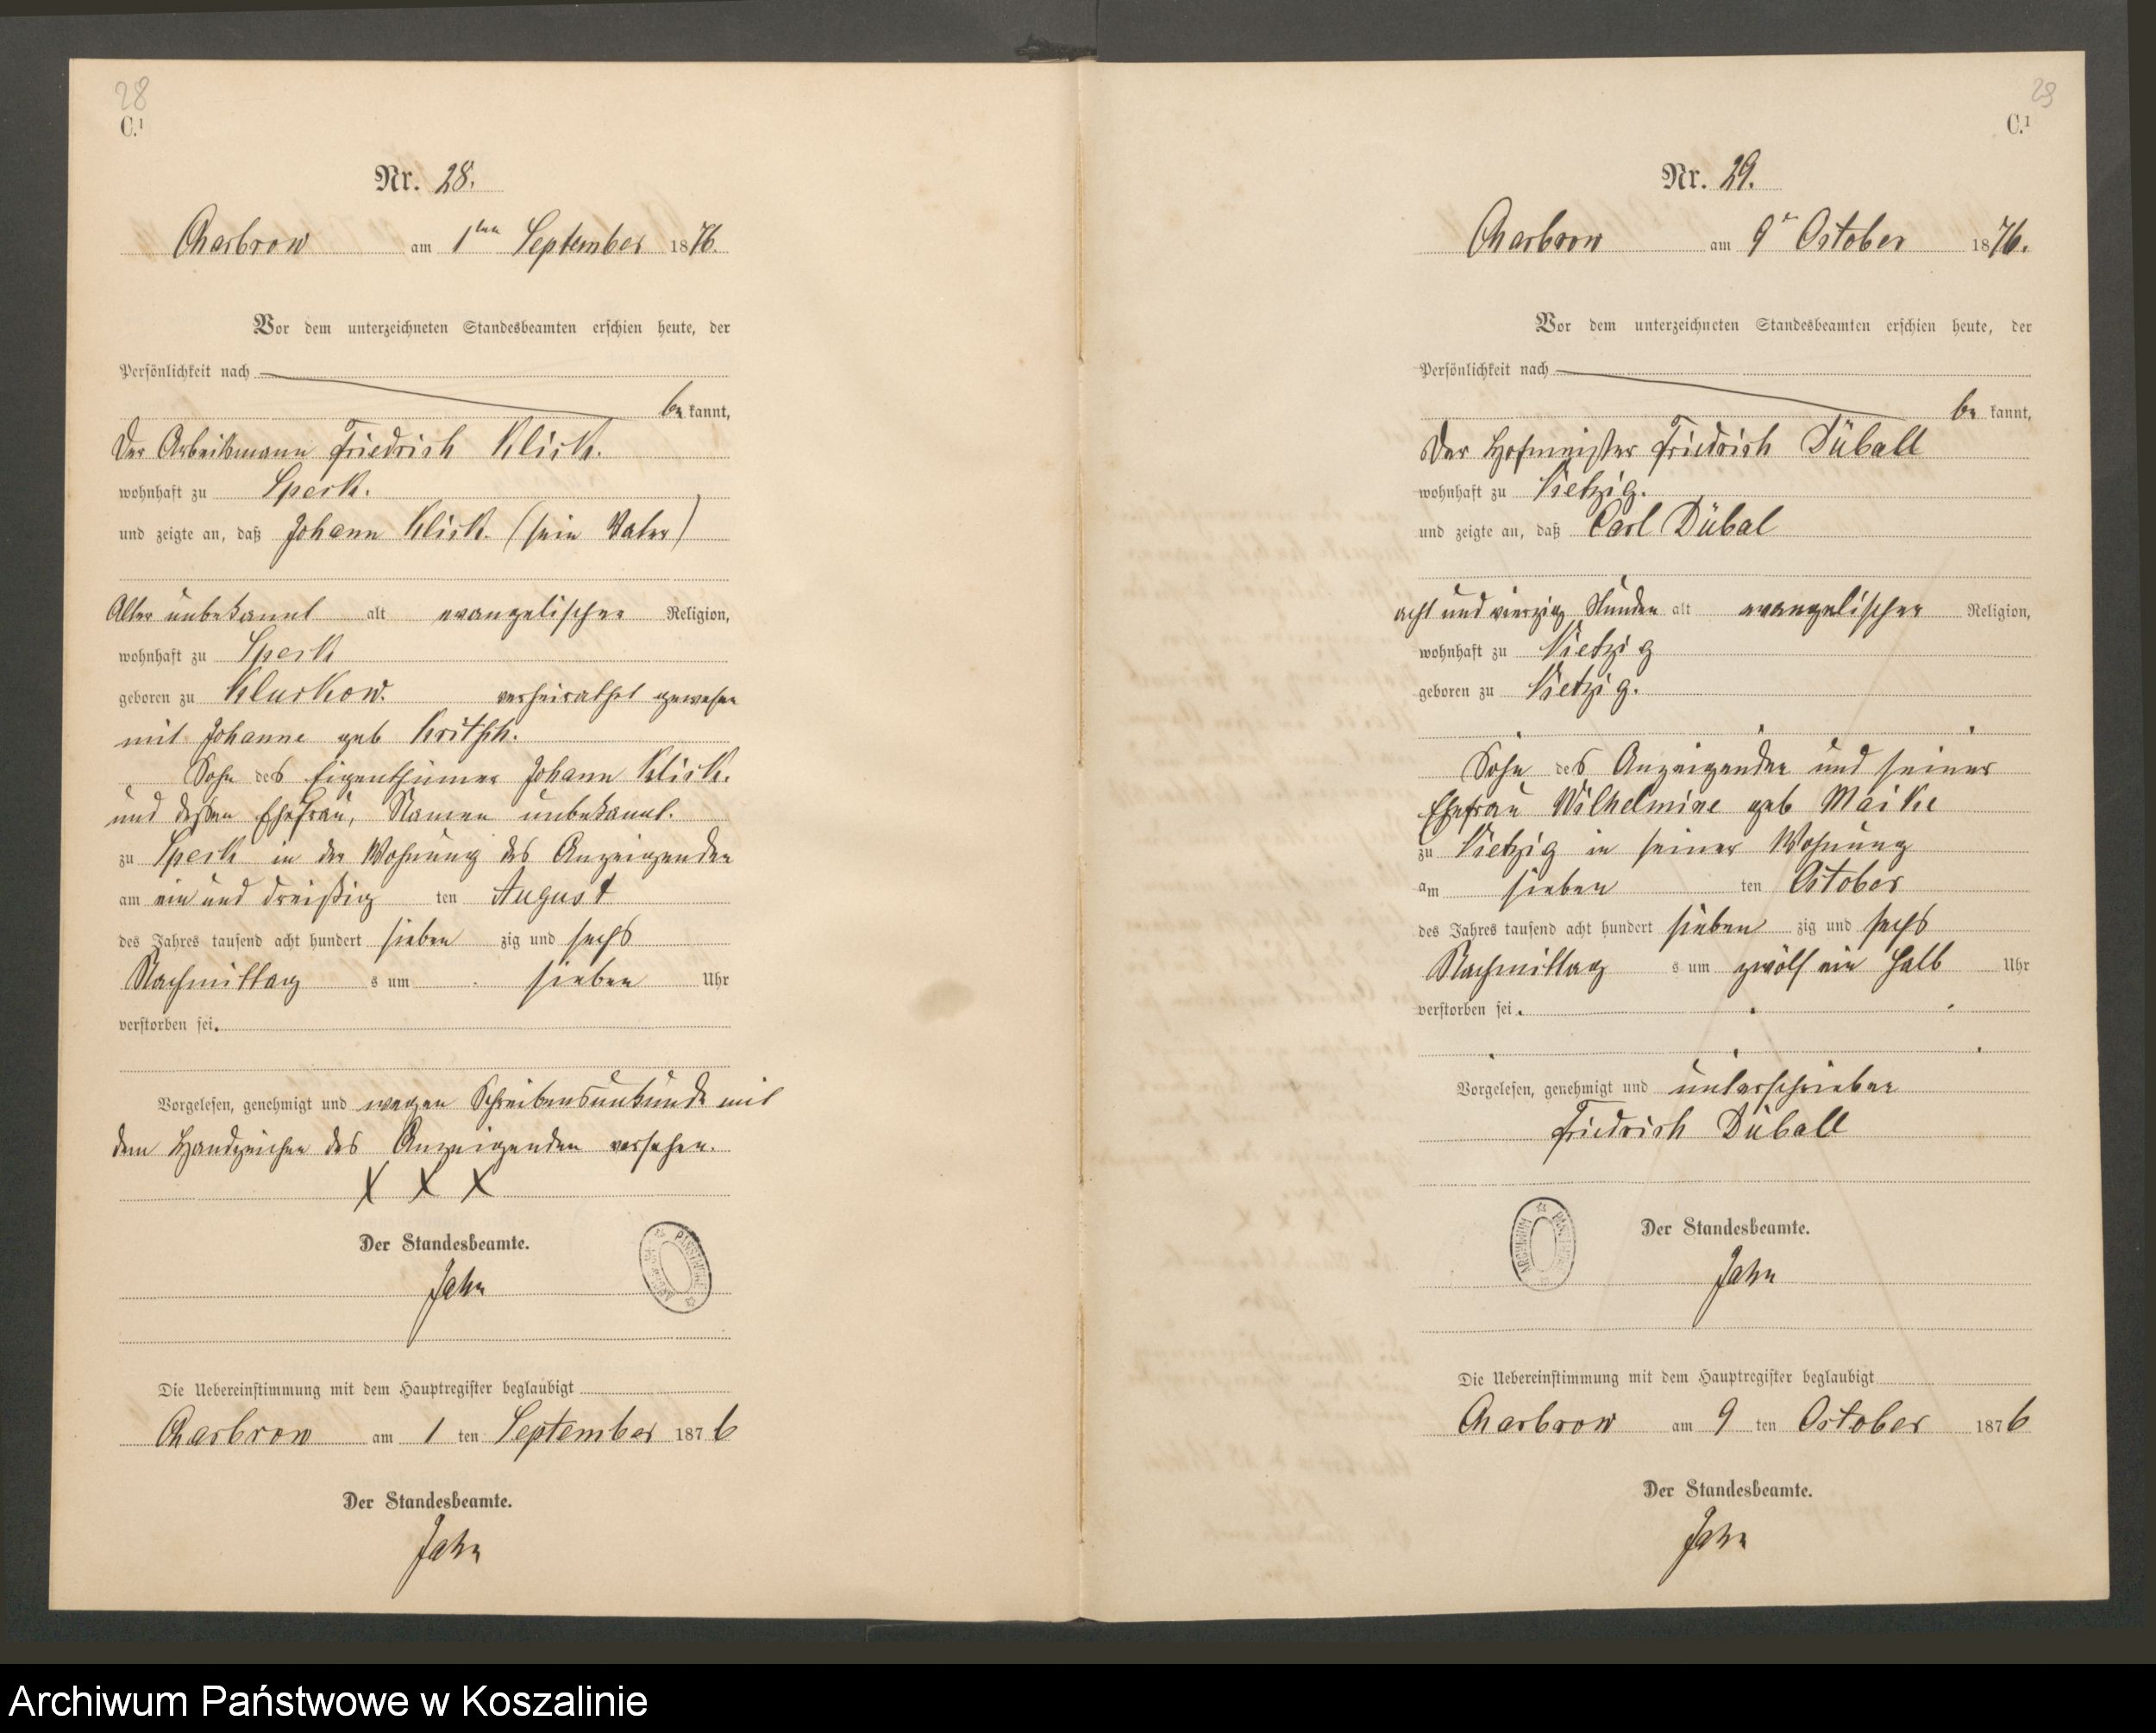 28
C.¹
Nr. 28.
Charbrow am 1ten September 1876.
Vor dem unterzeichneten Standesbeamten erschien heute, der
Persönlichkeit nach
be kannt,
Der Arbeitsmann Friedrich Klick.
wohnhaft zu Speck.
und zeigte an, daß Johann Klick. (sein Vater)
Alter unbekannt alt evangelischer Religion,
wohnhaft zu Speck
geboren zu Kluckow. verheirathet gewesen
mit Johanne geb
Sohn des Eigenthümer Johann Klick.
und dessen Ehefrau, Namen unbekannt.
zu Speck in der Wohnung des Anzeigenden
am ein und dreißig ten August
des Jahres tausend acht hundert sieben zig und sechs
Nachmittag s um sieben Uhr
verstorben sei.
Vorgelesen, genehmigt und wegen Schreibensunkunde mit
dem Handzeichen des Anzeigenden versehen.
X X X
Der Standesbeamte.
Jahn
Die Uebereinstimmung mit dem Hauptregister beglaubigt
Charbrow am 1 ten September 1876
Der Standesbeamte.
Jahn
29
C.¹
Nr. 29.
Charbrow am 9n October 1876.
Vor dem unterzeichneten Standesbeamten erschien heute, der
Persönlichkeit nach
be kannt,
Der Hofmeister Friedrich Düball
wohnhaft zu Vietzig.
und zeigte an, daß Carl Dübal
acht und vierzig Stunden alt evangelischer Religion,
wohnhaft zu Vietzig
geboren zu Vietzig.
Sohn des Anzeigenden und seiner
Ehefrau Wilhelmine geb
zu Vietzig in seiner Wohnung
am sieben ten October
des Jahres tausend acht hundert sieben zig und sechs
Nachmittag s um zwölf ein halb Uhr
verstorben sei.
Vorgelesen, genehmigt und unterschrieben
Friedrich Düball
ARCHIWUM PAŃSTWOWE
Der Standesbeamte.
Jahn
Die Uebereinstimmung mit dem Hauptregister beglaubigt
Charbrow am 9 ten October 1876
Der Standesbeamte.
Jahn
Archiwum Państwowe w Koszalinie